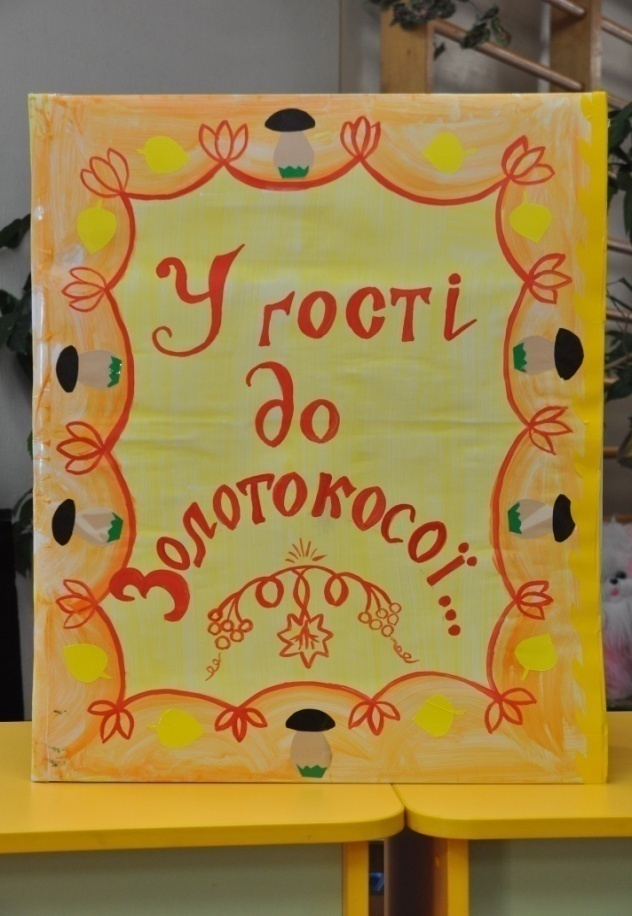 У гості
до
Золотокосої...